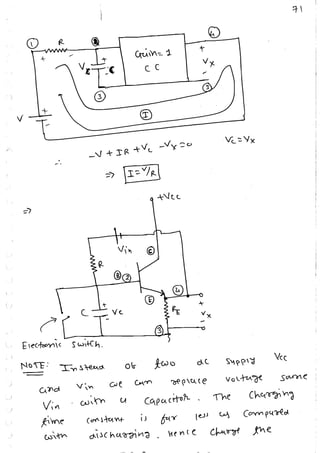 71
① R ② Gain = 1 ④
+ + CC +
Vx
③ ③
V
I
Vc = Vx
∴ -V + IR + Vc - Vx = 0
⇒ I = V/R
⇒
+Vcc
Vin ⑥
R
②
⑤ ④
C Vc RE Vx
③
Electronic switch.
NOTE: Instead of two dc supply Vcc
and Vin we can replace voltage source
Vin with a capacitor. The charging
time constant is far less as compared
with discharging. Hence charge the